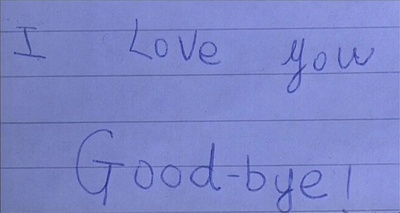 I Love you
Good-bye!